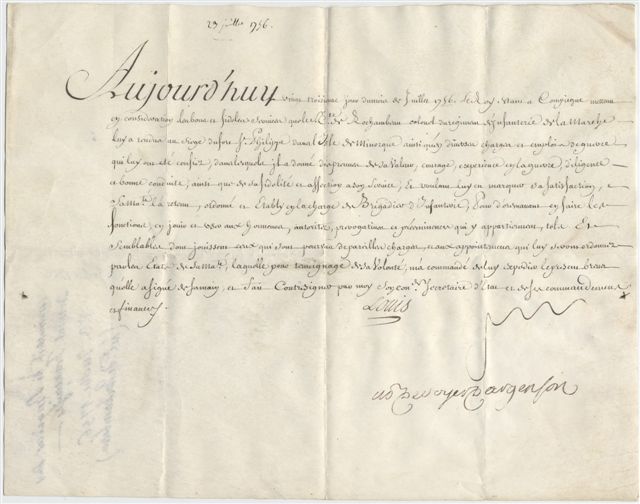 23 juillet 1756.
Aujourd'huy vingt troisieme jour du mois de Juillet 1756. Le Roy etant a Compiegne mettant
en consideration les bons et fideles services que le S. Cte. de Rochambeau colonel du regiment d'Infanterie de la Marche
luy a rendus au siege du fort St. Philippe dans l'Isle de Minorque ainsi qu'en diverses charges et emplois de guerre
qui luy ont eté confiez, dans lesquels il a donné des preuves de sa valeur, courage, experience en la guerre, diligence
et bonne conduite, ainsi que de sa fidelité et affection a son service; Et voulant luy en marquer sa satisfaction,
Sa Ma.té l'a retenu, ordonné et Etably en la charge de Brigadier d'Infanterie, Pour d'orenavant en faire les
fonctions, en jouir et user aux honneurs, autoritez, prerogatives et preeminences qui y appartiennent, tels Et
semblables dont jouissent ceux qui sont pourvus de pareilles charges, et aux appointemens qui luy seront ordonnez
par les Etats de Sa Ma.té, laquelle pour temoignage de sa volonté, m'a commandé de luy expedier le present brevet
qu'elle a signé de sa main, et fait Contresigner par moy son con.er Secretaire d'Etat et de ses commandemens
et finances.
Louis
M. P. De Voyer D'argenson